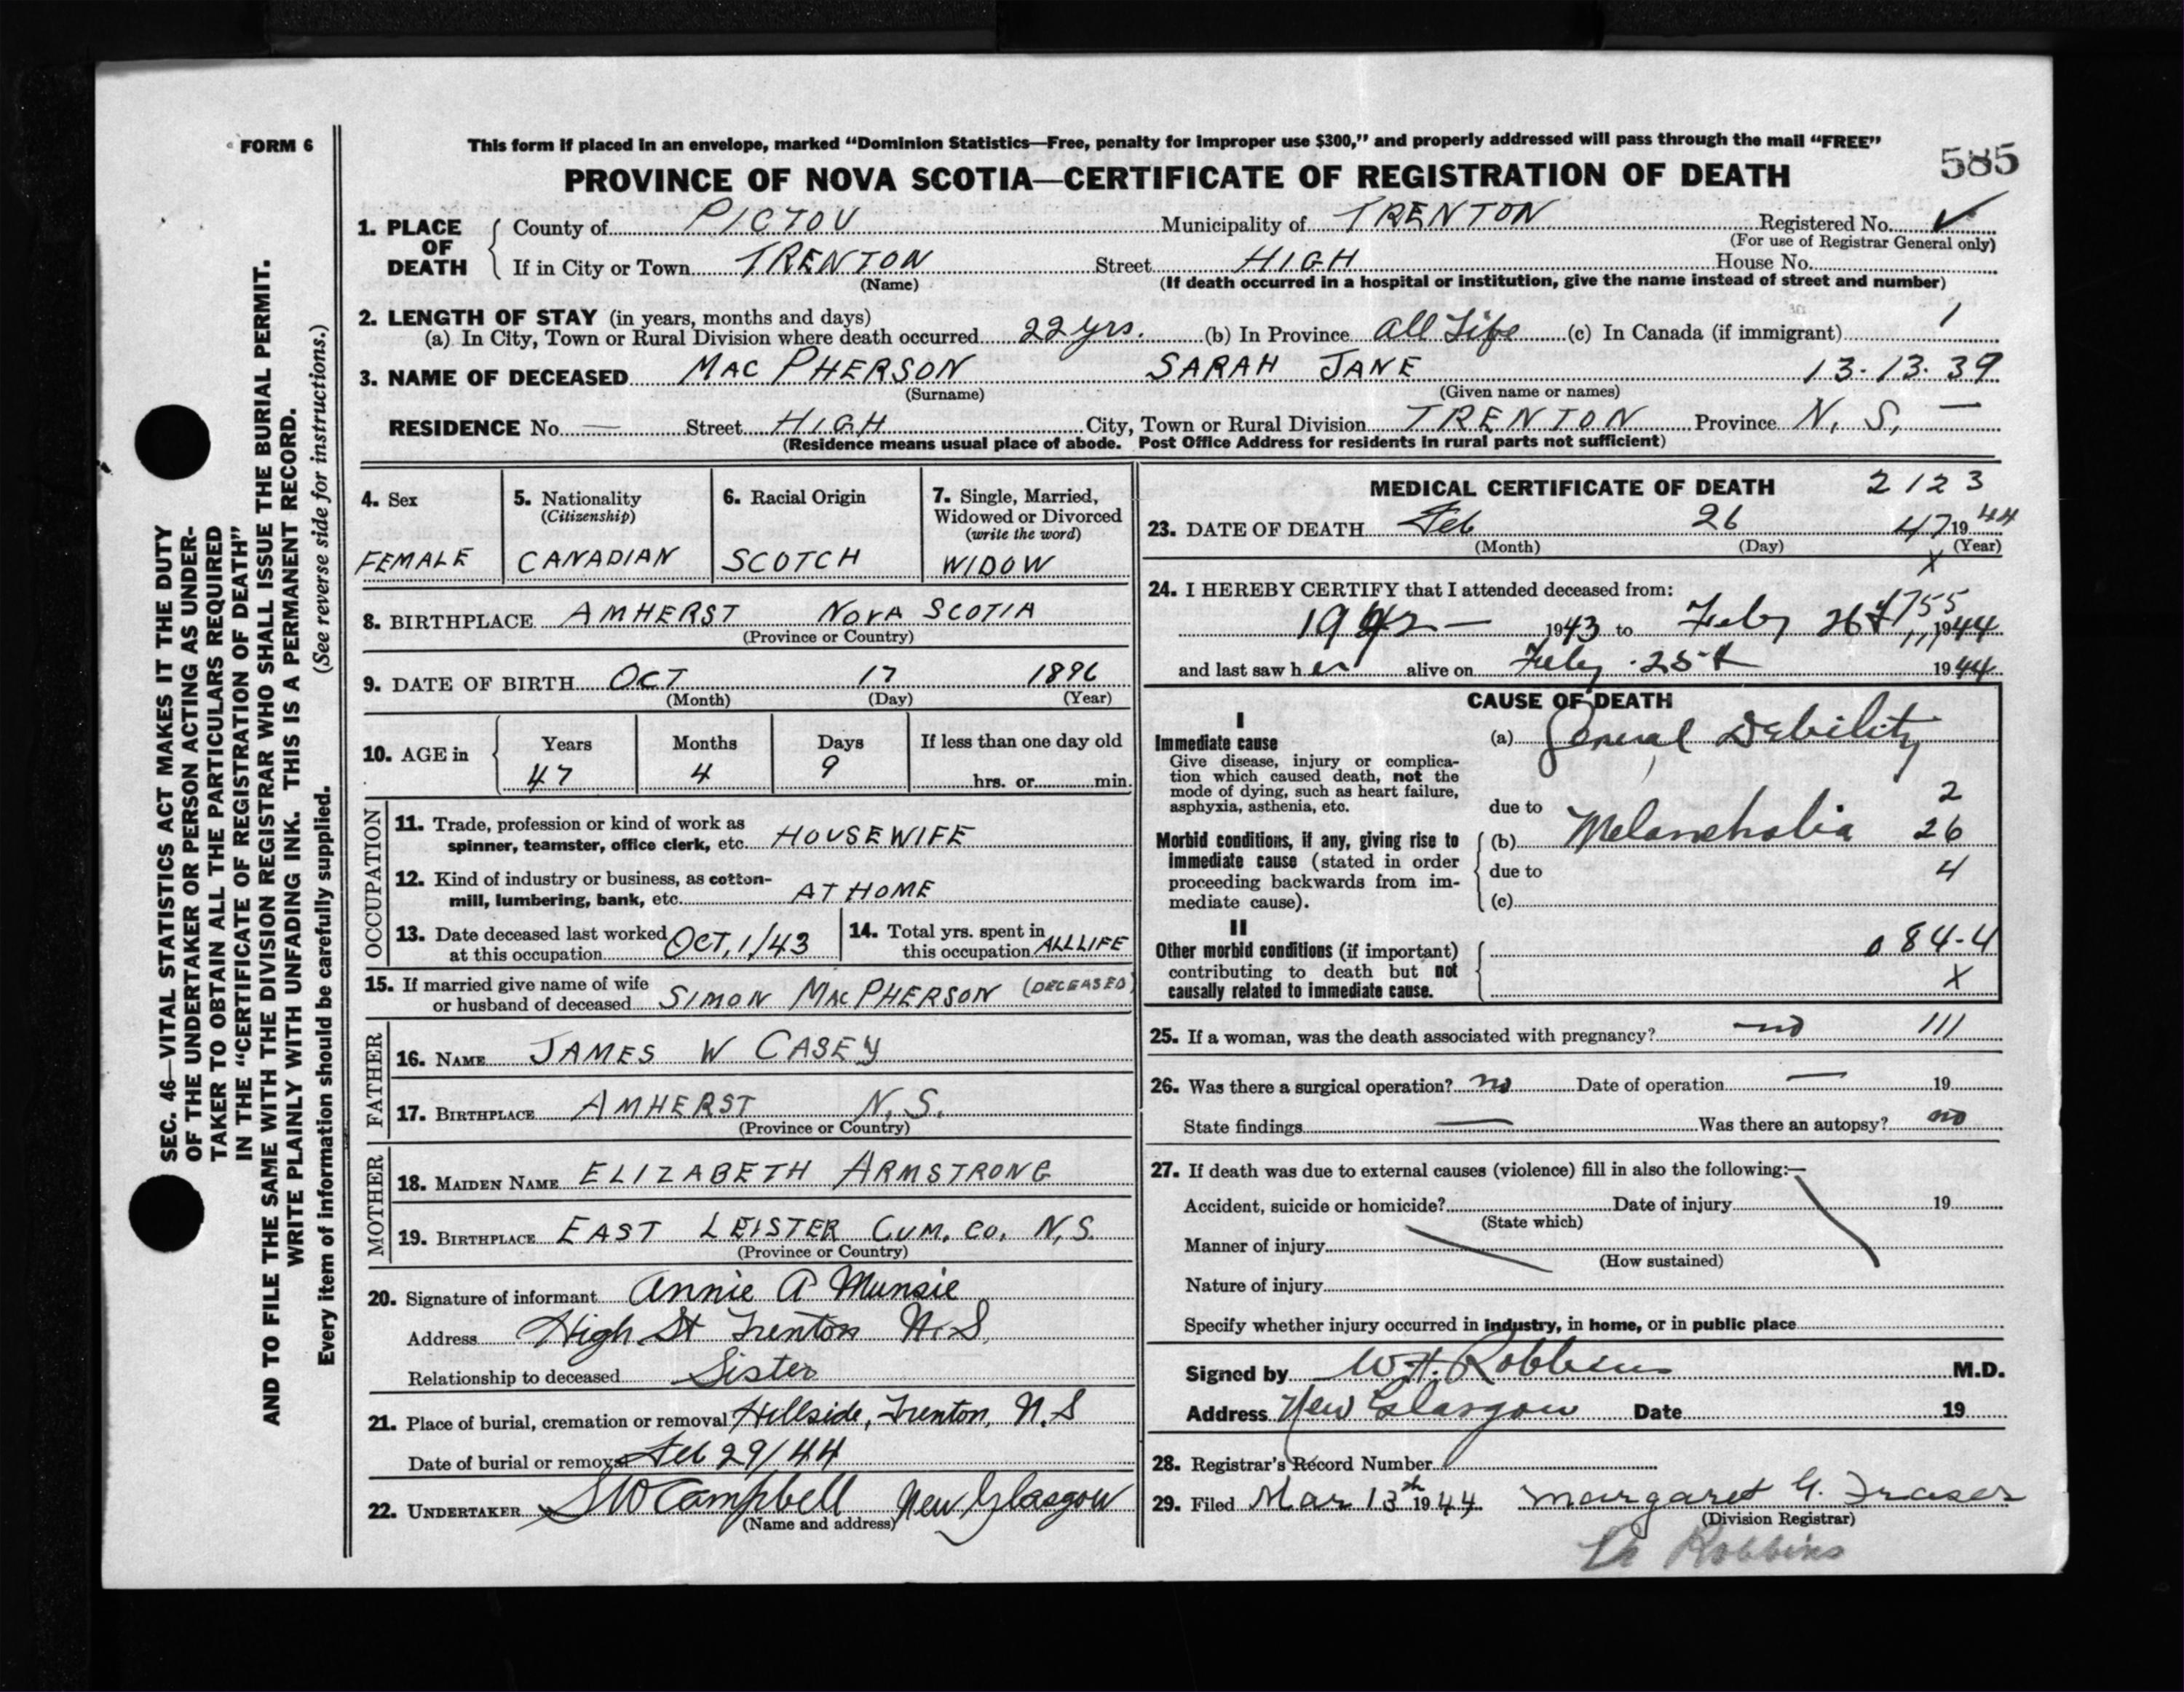 FORM 6
This form if placed in an envelope, marked “Dominion Statistics—Free, penalty for improper use $300,” and properly addressed will pass through the mail “FREE”
585
PROVINCE OF NOVA SCOTIA—CERTIFICATE OF REGISTRATION OF DEATH
SEC. 46—VITAL STATISTICS ACT MAKES IT THE DUTY
OF THE UNDERTAKER OR PERSON ACTING AS UNDER-
TAKER TO OBTAIN ALL THE PARTICULARS REQUIRED
IN THE “CERTIFICATE OF REGISTRATION OF DEATH”
AND TO FILE THE SAME WITH THE DIVISION REGISTRAR WHO SHALL ISSUE THE BURIAL PERMIT.
WRITE PLAINLY WITH UNFADING INK. THIS IS A PERMANENT RECORD.
(See reverse side for instructions.)
Every item of information should be carefully supplied.
1. PLACE OF DEATH
County of PICTOU Municipality of TRENTON Registered No. ✓
(For use of Registrar General only)
If in City or Town TRENTON Street HIGH House No.
(Name) (If death occurred in a hospital or institution, give the name instead of street and number)
2. LENGTH OF STAY (in years, months and days)
(a) In City, Town or Rural Division where death occurred 22 yrs. (b) In Province All Life (c) In Canada (if immigrant) 1
3. NAME OF DECEASED MAC PHERSON SARAH JANE 13-13-39
(Surname) (Given name or names)
RESIDENCE No. — Street HIGH City, Town or Rural Division TRENTON Province N. S. —
(Residence means usual place of abode. Post Office Address for residents in rural parts not sufficient)
4. Sex
FEMALE
5. Nationality
(Citizenship)
CANADIAN
6. Racial Origin
SCOTCH
7. Single, Married,
Widowed or Divorced
(write the word)
WIDOW
8. BIRTHPLACE AMHERST NOVA SCOTIA
(Province or Country)
9. DATE OF BIRTH OCT 17 1896
(Month) (Day) (Year)
10. AGE in
Years Months Days If less than one day old
47 4 9 hrs. or min.
OCCUPATION
11. Trade, profession or kind of work as
spinner, teamster, office clerk, etc. HOUSEWIFE
12. Kind of industry or business, as cotton-
mill, lumbering, bank, etc. AT HOME
13. Date deceased last worked
at this occupation OCT, 1/43
14. Total yrs. spent in
this occupation ALL LIFE
15. If married give name of wife
or husband of deceased SIMON MACPHERSON (DECEASED)
FATHER
16. NAME JAMES W CASEY
17. BIRTHPLACE AMHERST N.S.
(Province or Country)
MOTHER
18. MAIDEN NAME ELIZABETH ARMSTRONG
19. BIRTHPLACE EAST LEISTER CUM. CO. N.S.
(Province or Country)
20. Signature of informant Annie A Munsie
Address High St Trenton N.S.
Relationship to deceased Sister
21. Place of burial, cremation or removal Hillside, Trenton, N.S
Date of burial or removal Feb 29/44
22. UNDERTAKER Campbell New Glasgow
(Name and address)
MEDICAL CERTIFICATE OF DEATH 2123
23. DATE OF DEATH Feb 26 47 1944
(Month) (Day) (Year)
X
24. I HEREBY CERTIFY that I attended deceased from:
1942 — 1943 to Feby 26t 1755 1944
and last saw her alive on Feby. 25t 1944
CAUSE OF DEATH
I
Immediate cause
Give disease, injury or complica-
tion which caused death, not the
mode of dying, such as heart failure,
asphyxia, asthenia, etc.
(a) General Debility
due to 2
Morbid conditions, if any, giving rise to
immediate cause (stated in order
proceeding backwards from im-
mediate cause).
(b) Melancholia 26
due to 4
(c)
II
Other morbid conditions (if important)
contributing to death but not
causally related to immediate cause.
084-4
X
25. If a woman, was the death associated with pregnancy? no 111
26. Was there a surgical operation? no Date of operation — 19
State findings — Was there an autopsy? no
27. If death was due to external causes (violence) fill in also the following:—
Accident, suicide or homicide? Date of injury 19
(State which)
Manner of injury
(How sustained)
Nature of injury
Specify whether injury occurred in industry, in home, or in public place
Signed by W.H. Robbins M.D.
Address New Glasgow Date 19
28. Registrar's Record Number
29. Filed Mar 13th 1944 Margaret G. Fraser
(Division Registrar)
Dr Robbins